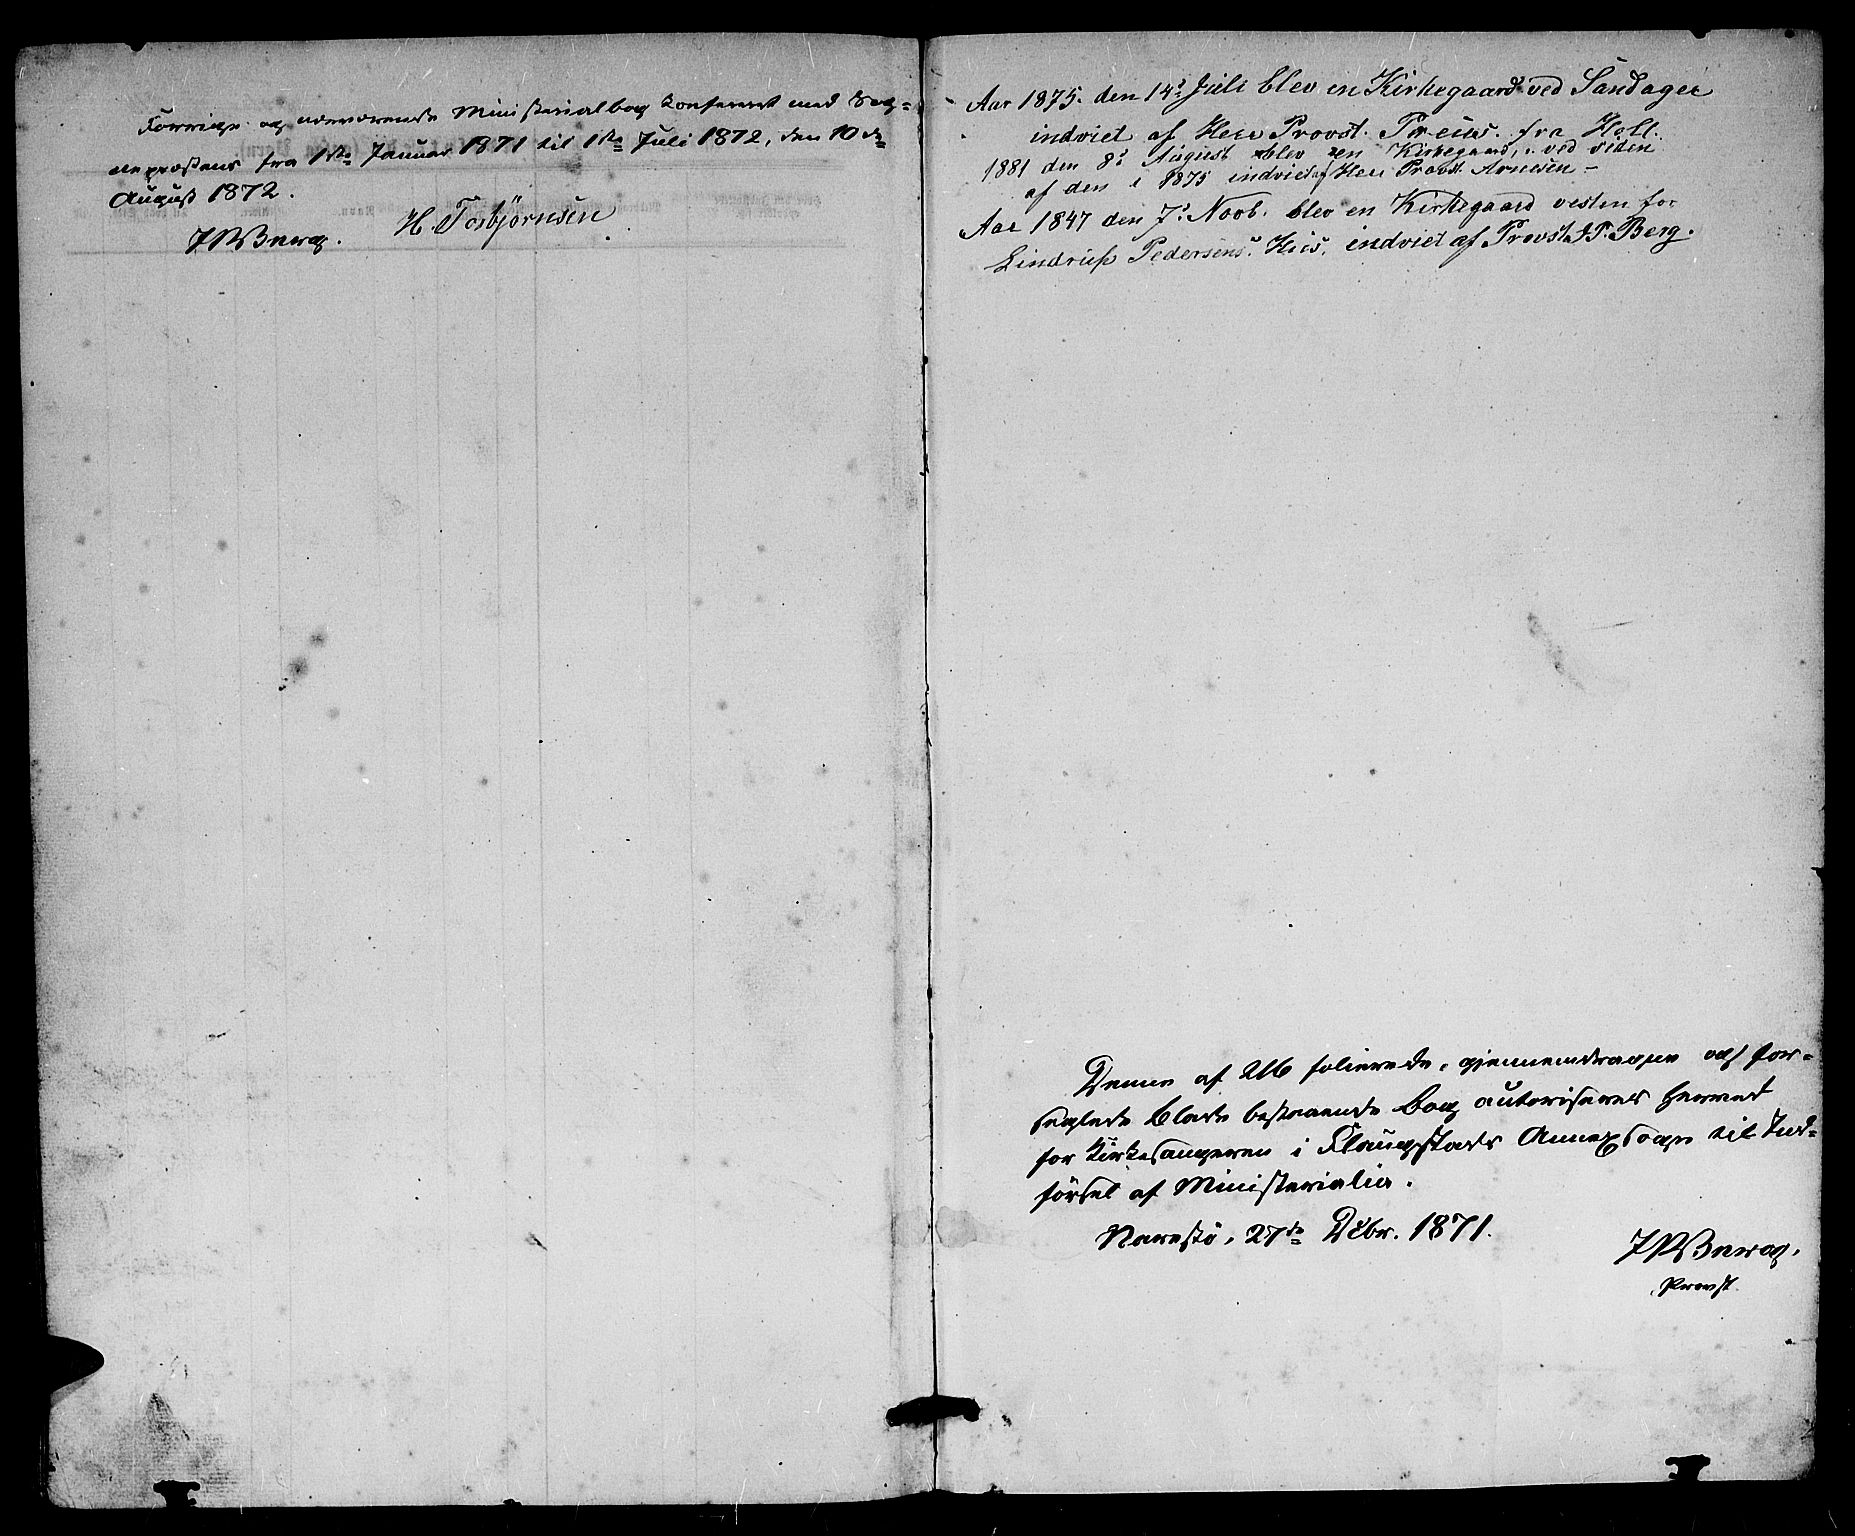 Forrige og nærværende Ministerialbog konfereret med Sog=
nepræstens fra 1ste Januar 1871 til 1ste Juli 1872, den 10de
August 1872.
JPBerg. H. Torbjörnsen
Aar 1875. den 14s Juli blev en Kirkegaard ved Sandager
indviet af Herr Provst. Preus. fra Holt.
1881 den 8s August blev en Kirkegaard, ved siden
af den i 1875 indviet af Herr Provst Arnesen -
Aar 1847 den 7s Novb. blev en Kirkegaard vesten for
Hus. indviet af Provst J.P. Berg.
Denne af 216 folierede, gjennemdragne og for=
seglede Blade bestaaende Bog autoriseres herved
for Kirkesangeren i Flaugstads Annexsogn til Ind=
førsel af Ministerialia.
Narestø, 27de Dcbr. 1871.
JPBerg.
Provst.